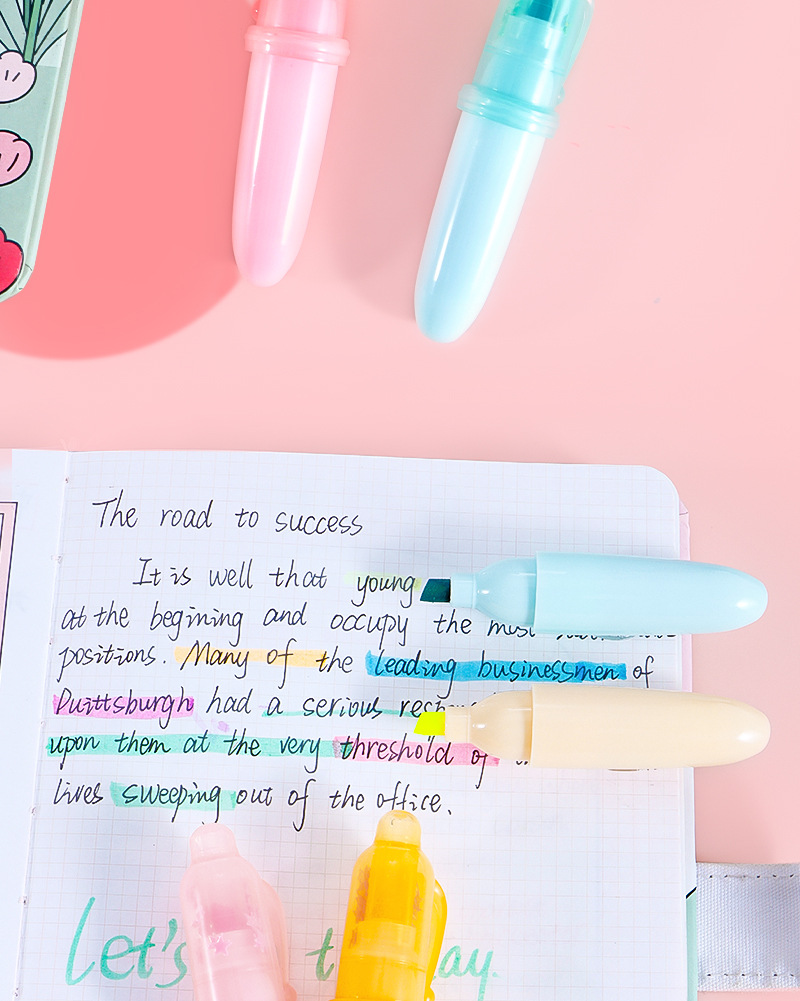 The road to success
It is well that young
at the begining and occupy the most
positions. Many of the leading businessmen of
Puittsburgh had a serious
upon them at the very threshold of
lives sweeping out of the office.
Let's